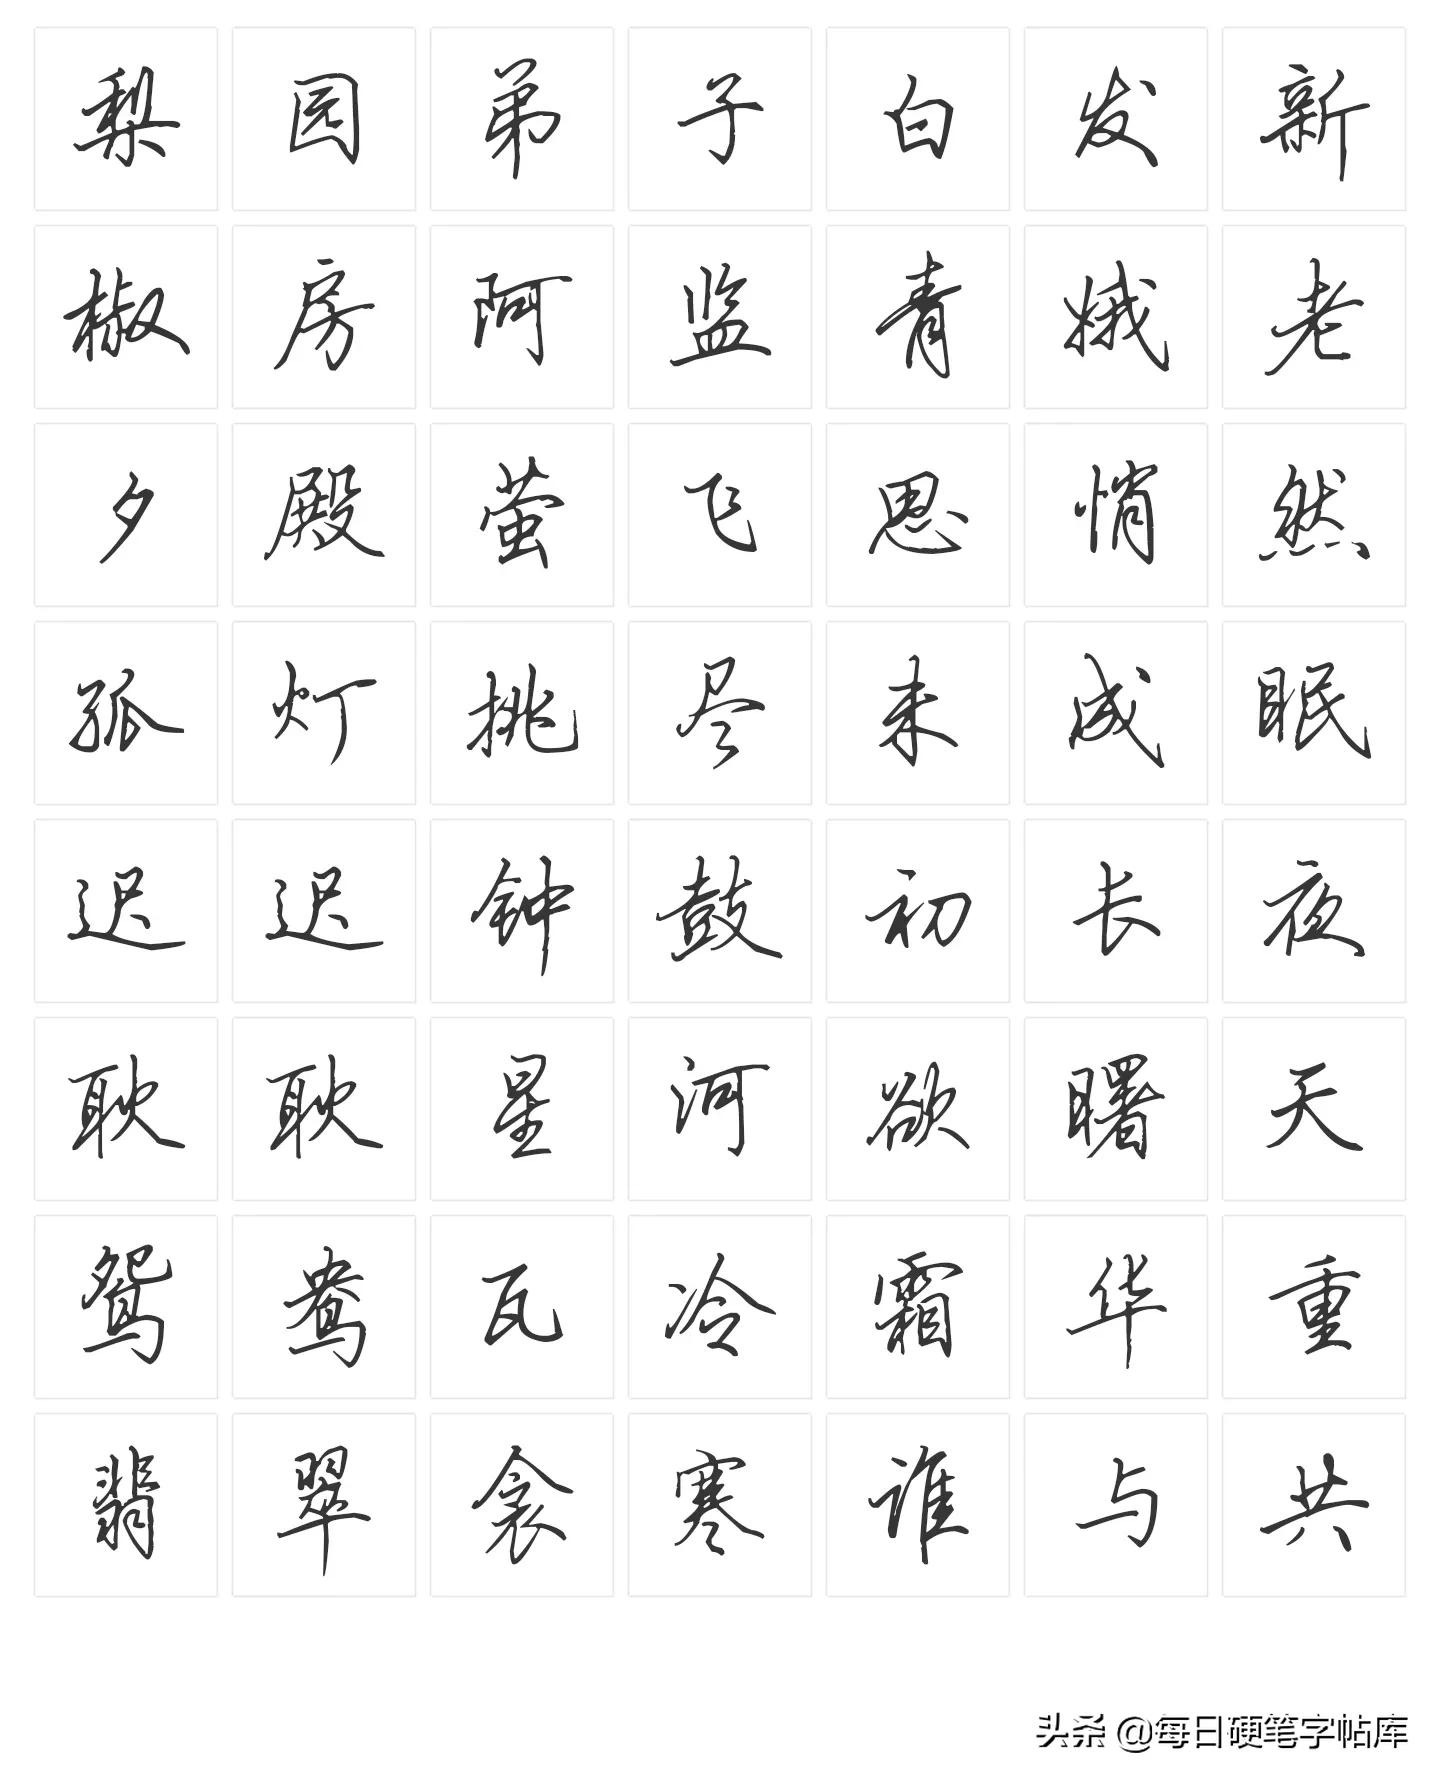 梨园弟子白发新
椒房阿监青娥老
夕殿萤飞思悄然
孤灯挑尽未成眠
迟迟钟鼓初长夜
耿耿星河欲曙天
鸳鸯瓦冷霜华重
翡翠衾寒谁与共
头条 @每日硬笔字帖库